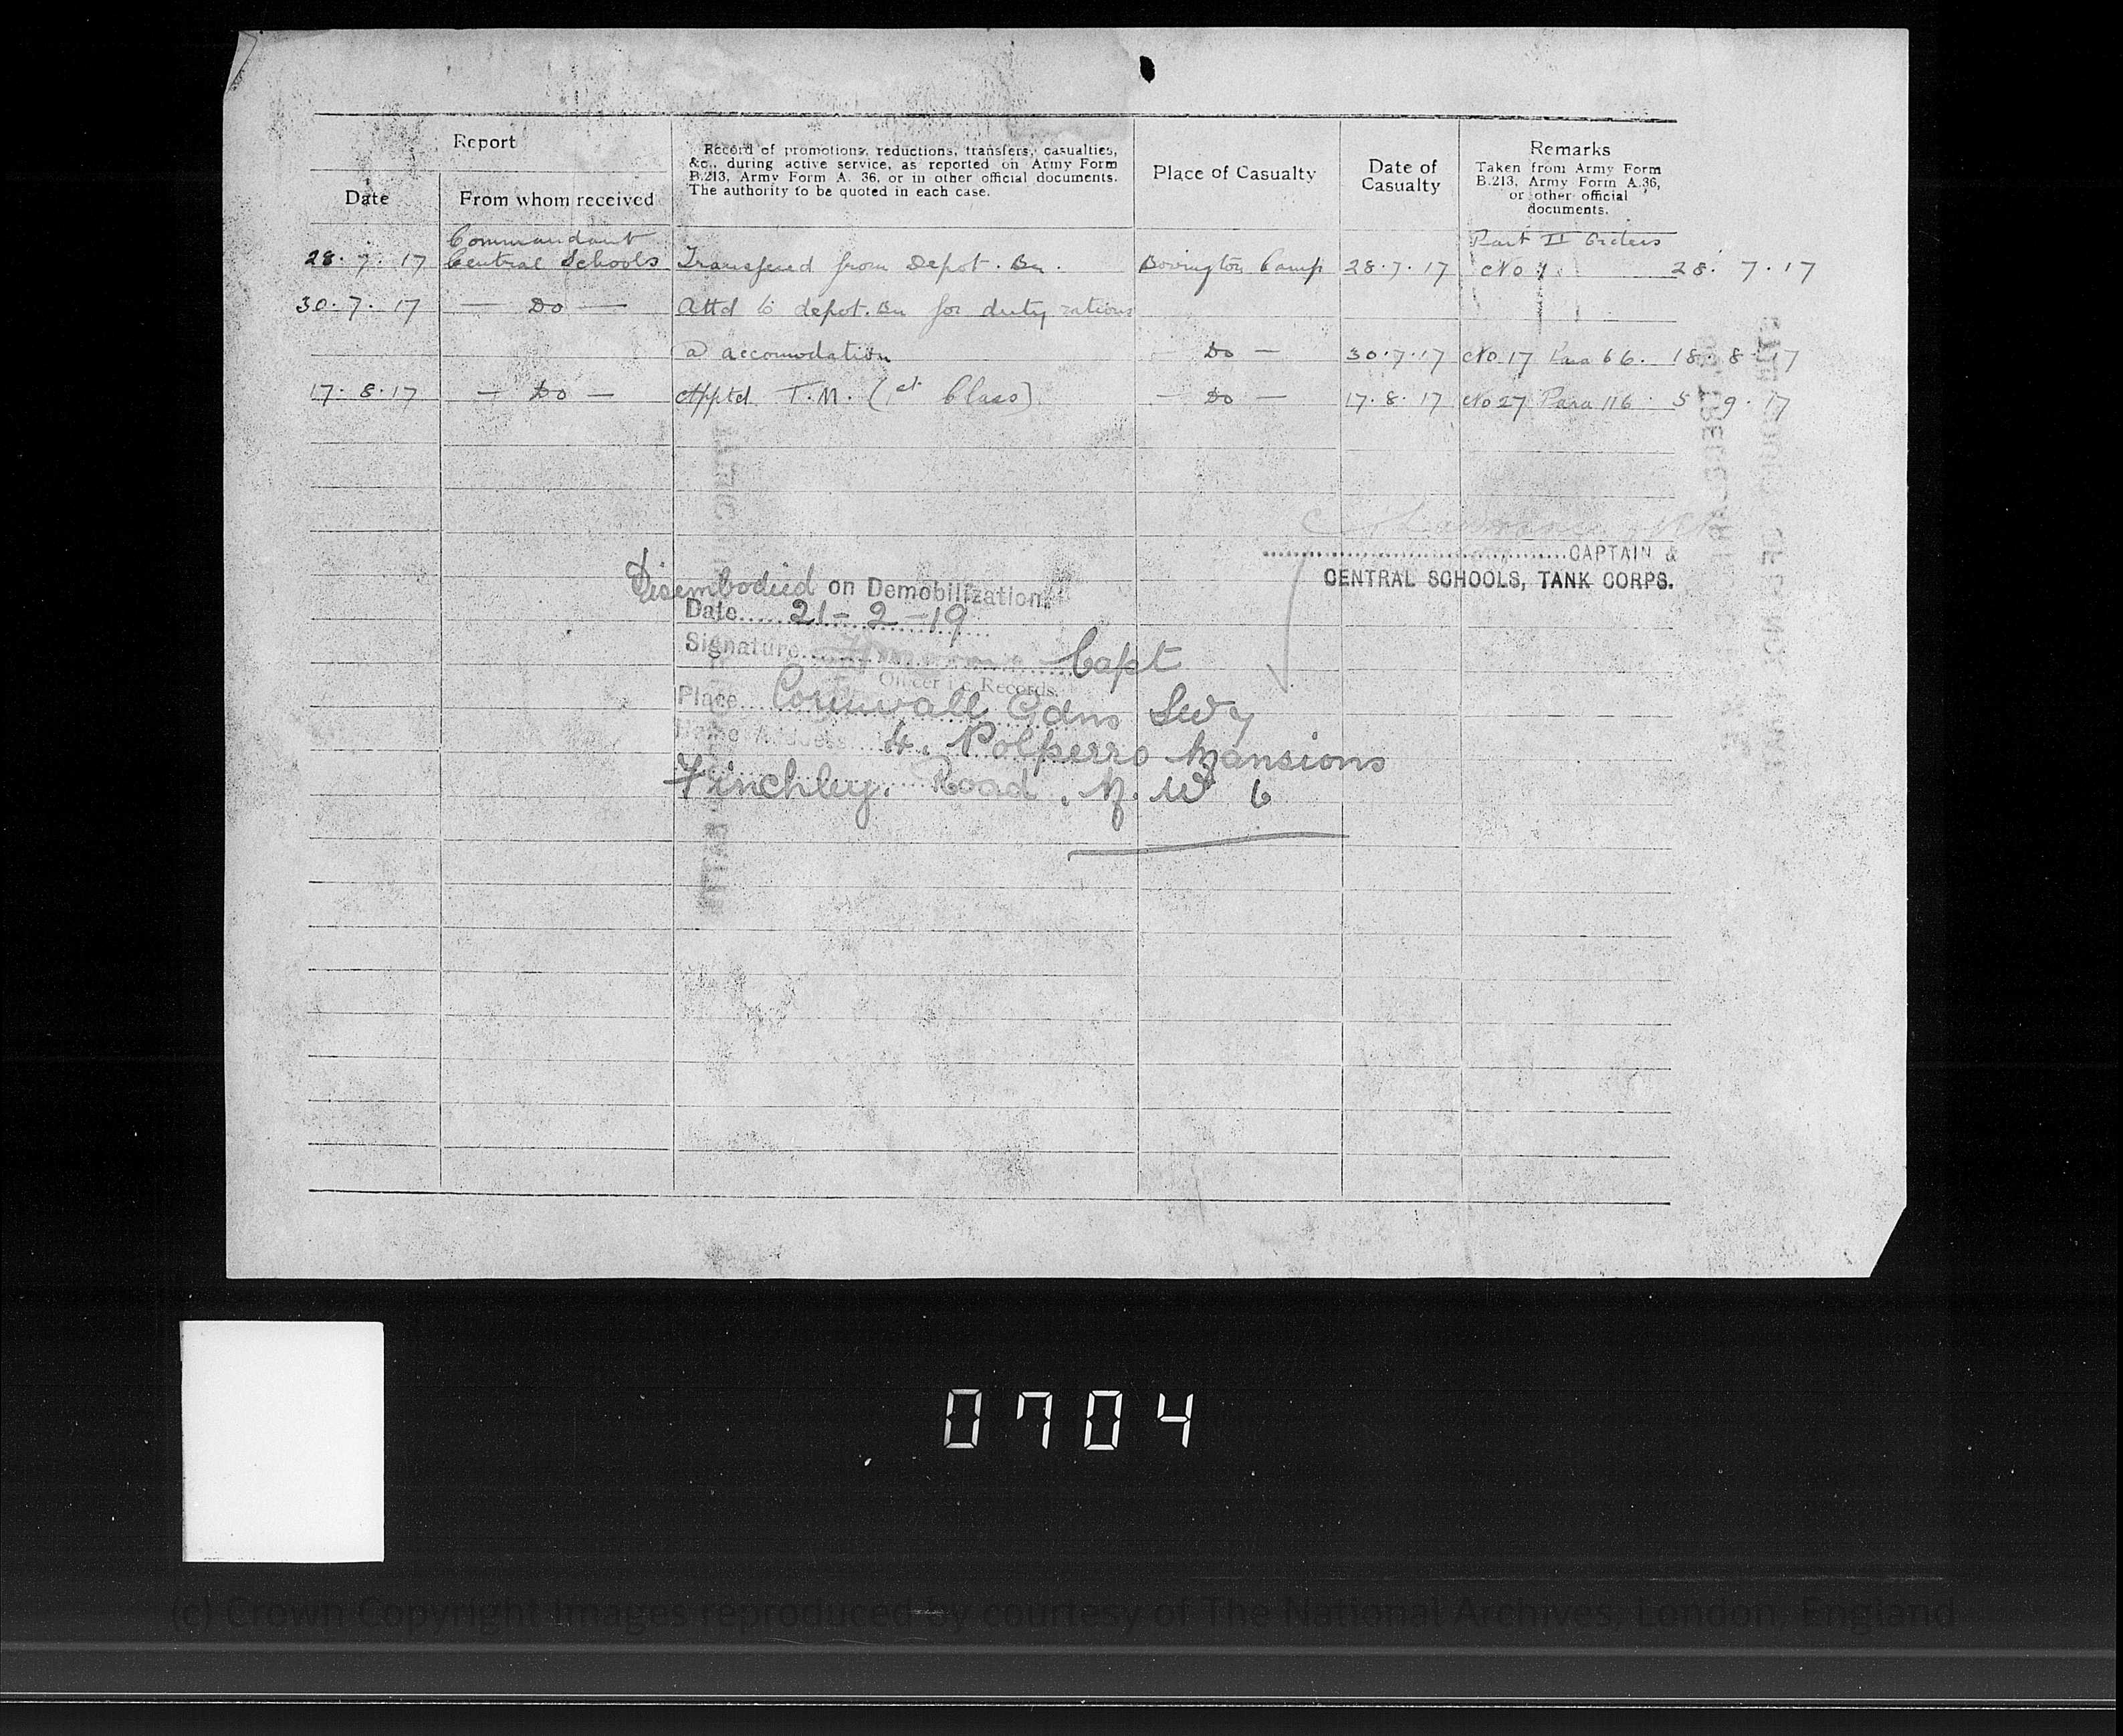 Report
Record of promotions, reductions, transfers, casualties,
&c., during active service, as reported on Army Form
B.213, Army Form A. 36, or in other official documents.
The authority to be quoted in each case.
Place of Casualty
Date of
Casualty
Remarks
Taken from Army Form
B.213, Army Form A.36,
or other official
documents.
Date
From whom received
Commandant
Part II Orders
28.7.17 Central Schools Transferred from Depot. Bn. Bovington Camp 28.7.17 No 28.7.17
30.7.17 — Do — Attd to depot. Bn for duty rations
accomodation — Do — 30.7.17 No 17 Para 66. 18.8.17
17.8.17 — Do — Apptd T.M. (1st Class) — Do — 17.8.17 No 27 Para 116. 5.9.17
CAPTAIN &
CENTRAL SCHOOLS, TANK CORPS.
Disembodied on Demobilization.
Date 21-2-19
Signature Capt
Officer i/c Records.
Place Cornwall Gdns SW7
Address 4. Polperro Mansions
Finchley. Road. N.W 6
0704
(c) Crown Copyright Images reproduced by courtesy of The National Archives, London, England